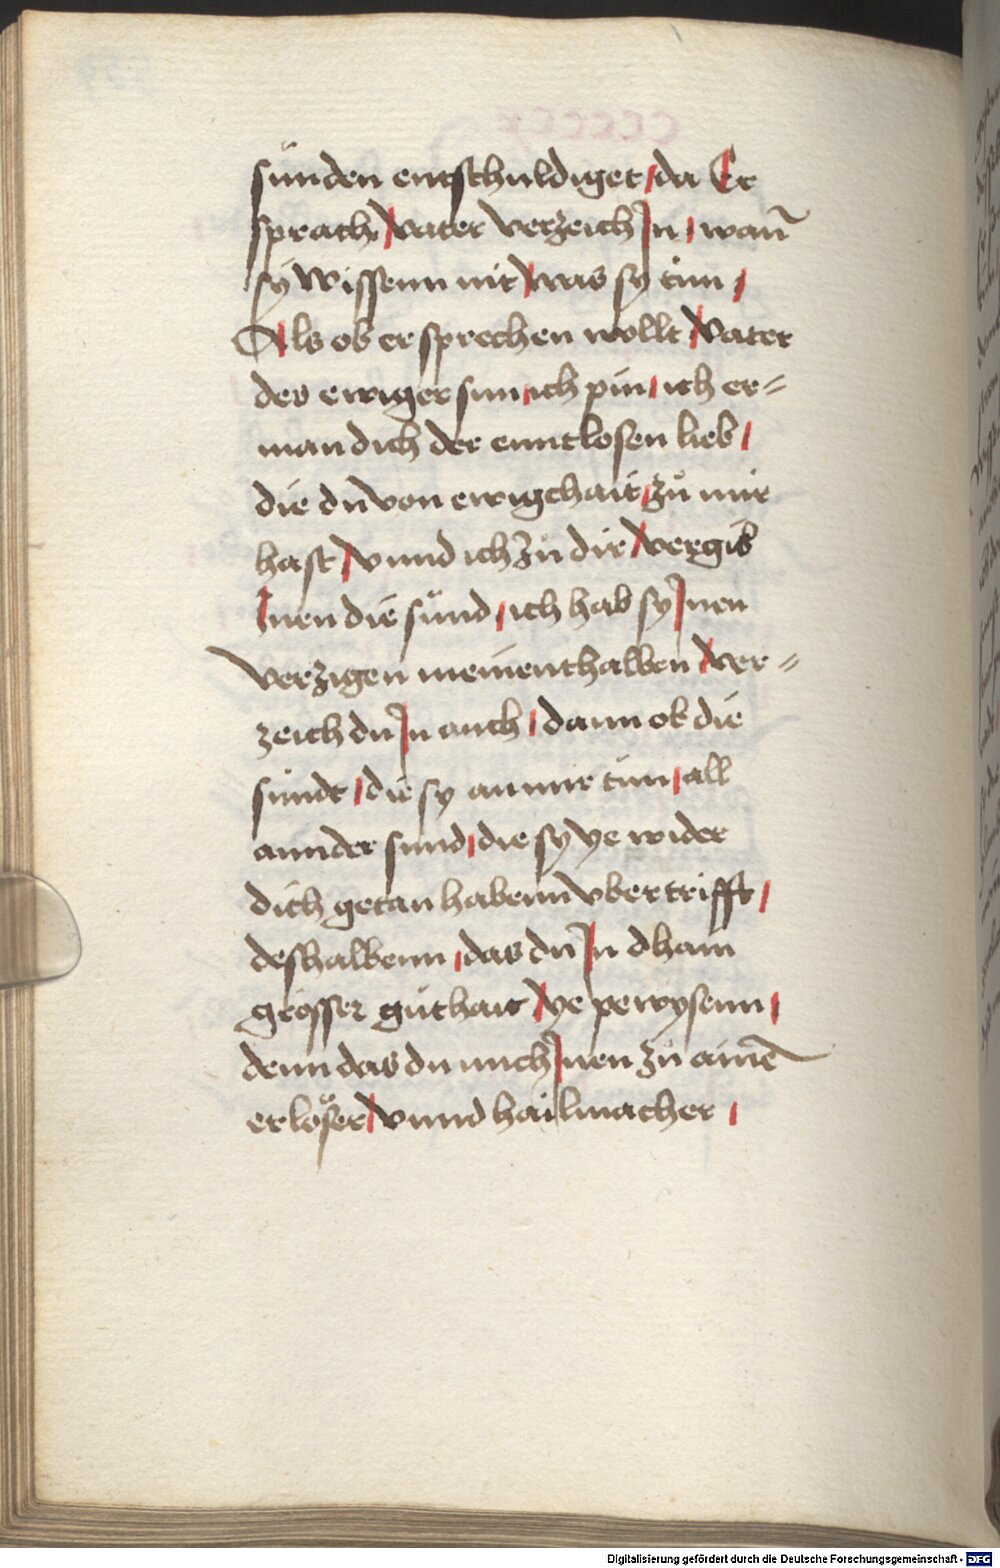 sünden entschuldiget / da Er
sprach / vater verzeich Jn / wan̄
sy wissenn nit / was sy tun /
Als ob er sprechen wollt / Vater
des ewiger sun / ich pin / ich er=
man dich der enntlosen lieb /
die du von ewigchait / zů mir
hast / vnnd ich zů dir / vergib
Jnen die sünd / ich hab sy Jnen
verzigen meinenthalben / ver=
zeich du Jn auch / dann ob die
sündt / die sy an mir tun / all
annder sund / die sy ye wider
dich getan habenn vbertrifft /
deshalbenn / das du Jn dhain
grösser güthait / ye pewysenn /
denn das du mich Jnen zů ainē
erlöser / vnnd hailmacher /
Digitalisierung gefördert durch die Deutsche Forschungsgemeinschaft - DFG